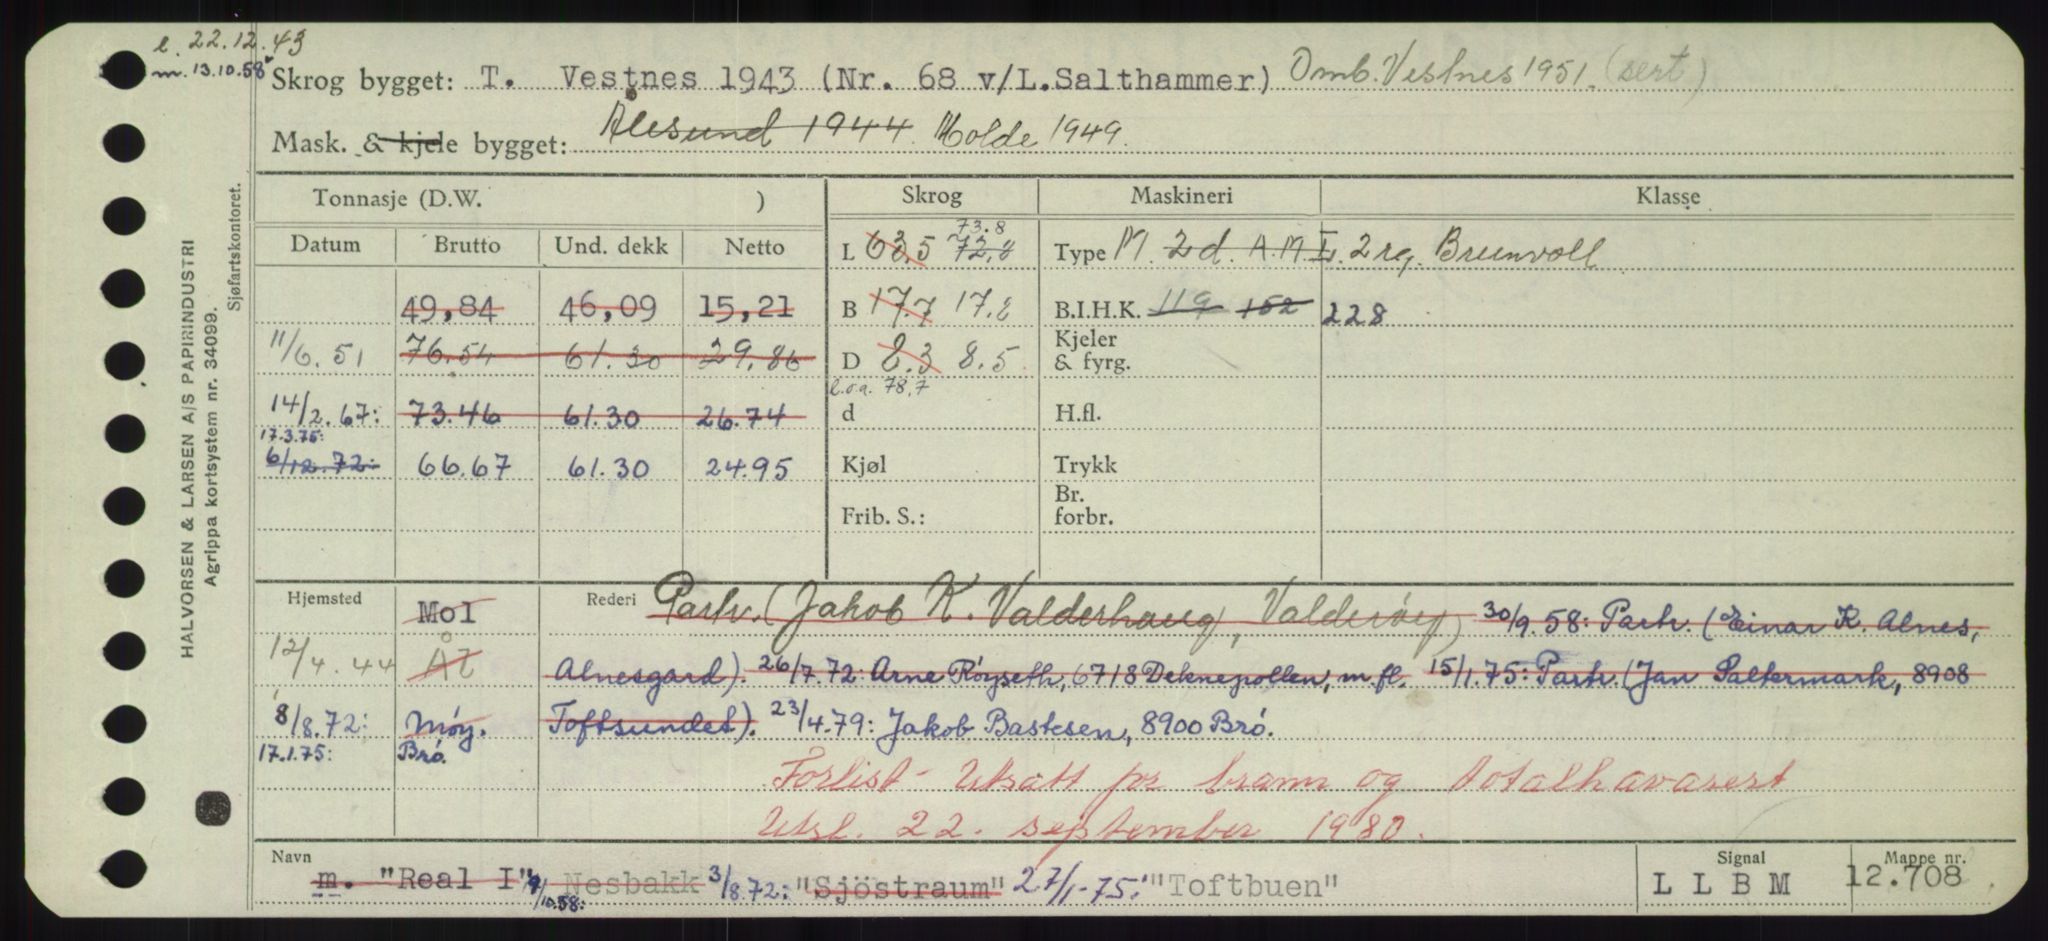 l. 22.12.43
m. 13.10.58
Skrog bygget: T. Vestnes 1943 (Nr. 68 v/L.Salthammer) Omb. Vestnes 1951. (sert)
Mask. & kjele bygget: Ålesund 1944. Molde 1949.
Tonnasje (D.W. ) Skrog Maskineri Klasse
Datum Brutto Und. dekk Netto
73.8
L 63,5 72,8 Type M. 2 d. A.M. I. 2 rg. Brunvoll
49,84 46,09 15,21 B 17.7 17.2 B.I.H.K. 119 152 228
11/6.51 76.54 61.30 29.86 D 8.3 8.5 Kjeler & fyrg.
l.o.a. 78,7
14/2.67: 73.46 61.30 26.74 d H.fl.
17.3.75:
6/12.72: 66.67 61.30 24.95 Kjøl Trykk
Frib. S.: Br. forbr.
Hjemsted Mol Rederi Partr. (Jakob K. Valderhaug, Valderøy) 30/9.58: Partr. (Einar K. Alnes,
12/4.44 Ål Alnesgard). 26/7.72: Arne Røyseth, 6718 Deknepollen, m.fl. 15/1.75: Partr. (Jan Saltermark, 8908
8/8.72: Møy. Toftsundet). 23/4.79: Jakob Bastesen, 8900 Brø.
17.1.75: Brø.
Forlist - Utsatt for brann og totalhavarert
Utsl. 22. september 1980.
Navn Signal Mappe nr.
m. "Real I" 9/10.58: Nesbakk 3/8.72: "Sjöstraum" 27/1-75: "Toftbuen" L L B M 12.708
HALVORSEN & LARSEN A/S PAPIRINDUSTRI
Agrippa kortsystem nr. 34099.
Sjøfartskontoret.